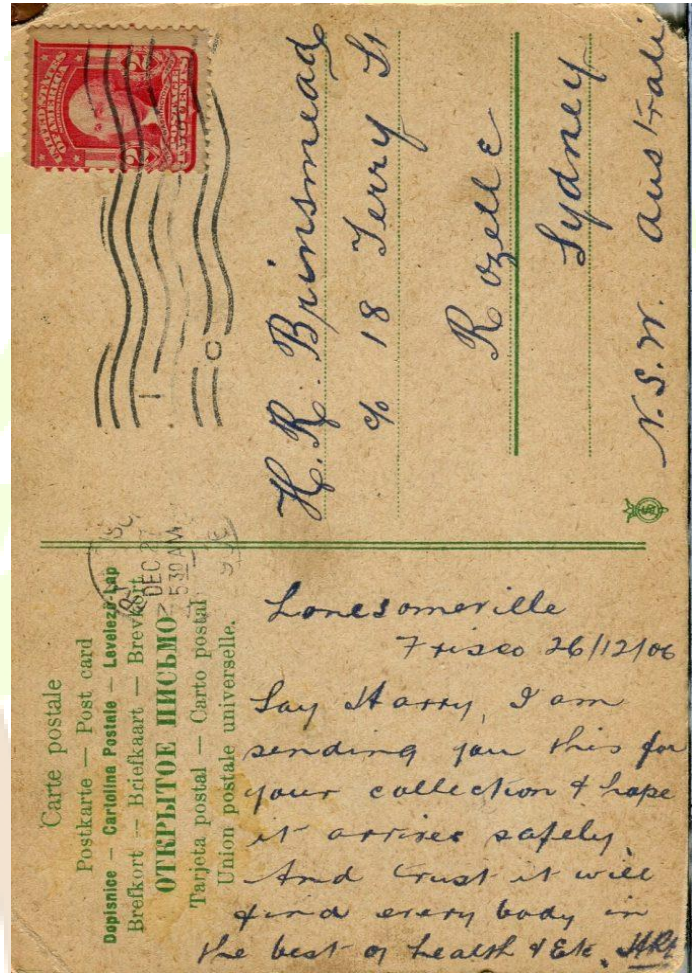 Carte postale
Postkarte — Post card
Dopisnice — Cartolina Postale — Levelező-Lap
Brefkort — Briefkaart — Brevkort
ОТКРЫТОЕ ПИСЬМО
Tarjeta postal — Carto postal
Union postale universelle.
DEC 2
5 30 AM
UNITED STATES
OF AMERICA
POSTAGE
TWO CENTS
2 2
H. R. Brinsmead
c/o 18 Terry St
Rozelle
Sydney
N.S.W. Australi
Lonesomerville
Frisco 26/12/06
Say Harry, I am
sending you this for
your collection & hope
it arrives safely.
And trust it will
find every body in
the best of health & Etc.